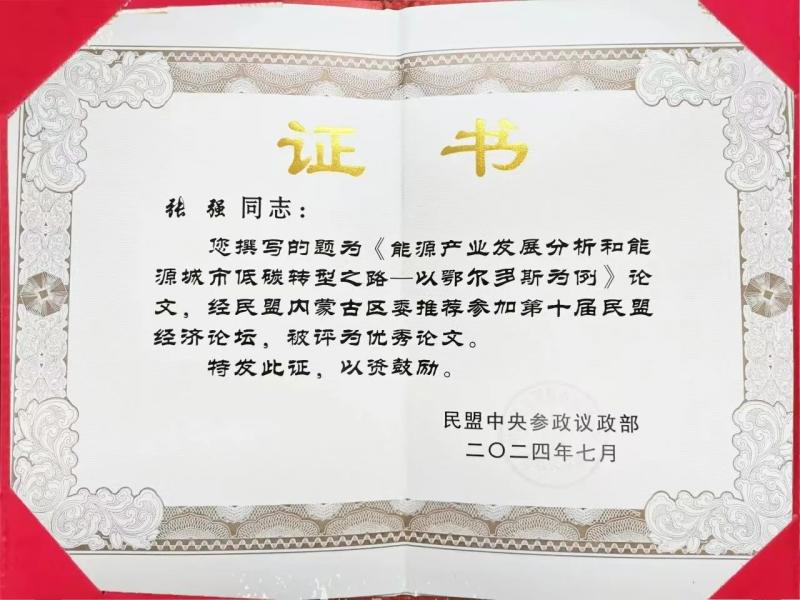 证 书
张 强 同志：
您撰写的题为《能源产业发展分析和能
源城市低碳转型之路—以鄂尔多斯为例》论
文，经民盟内蒙古区委推荐参加第十届民盟
经济论坛，被评为优秀论文。
特发此证，以资鼓励。
民盟中央参政议政部
二〇二四年七月